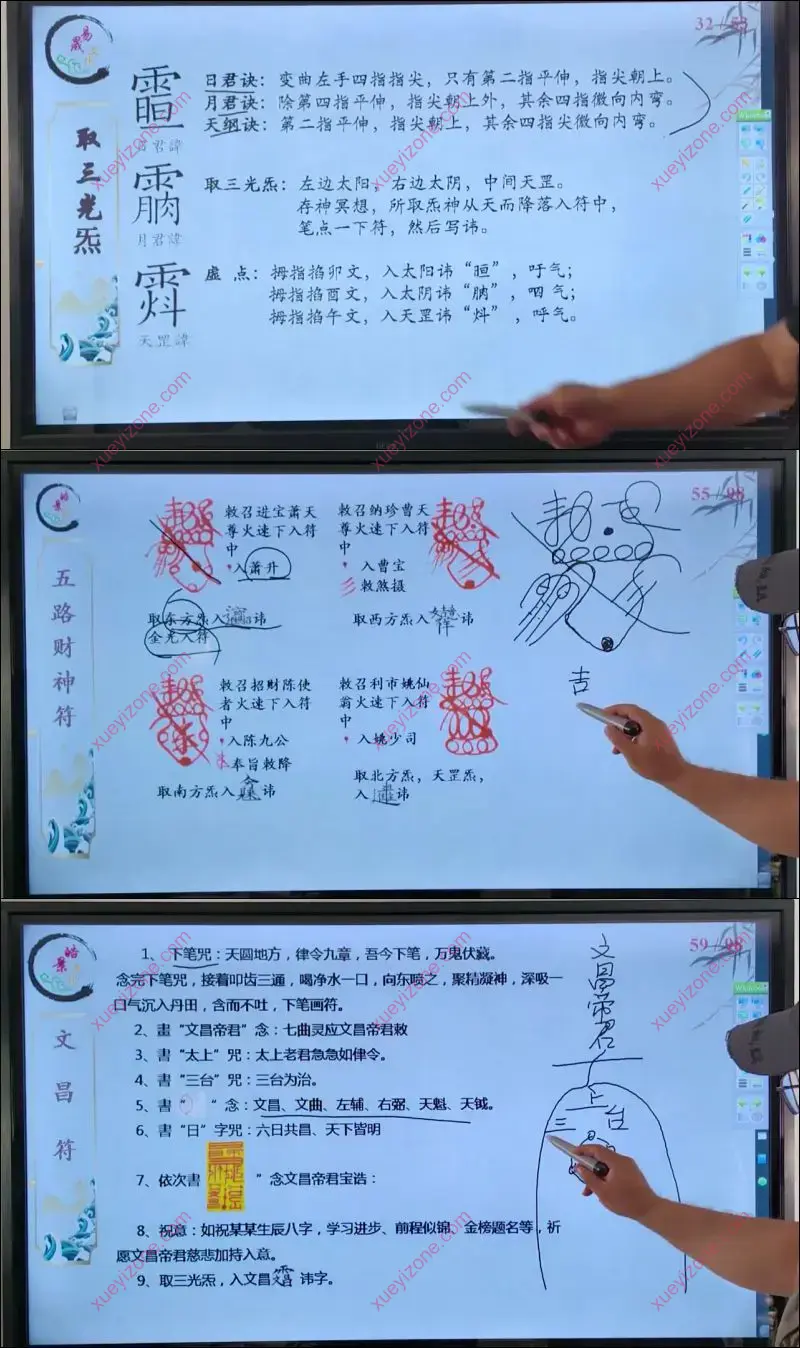 32 / 53
易
取三光炁
日君诀：变曲左手四指指尖，只有第二指平伸，指尖朝上。
月君诀：除第四指平伸，指尖朝上外，其余四指徽向内弯。
天纲诀：第二指平伸，指尖朝上，其余四指尖徽向内弯。
月君諱
取三光炁：左边太阳，右边太阴，中间天罡。
存神冥想，所取炁神从天而降落入符中，
笔点一下符，然后写讳。
天罡諱
虚 点：拇指掐卯文，入太阳讳“晅”，吁气；
拇指掐酉文，入太阴讳“朒”，呬气；
拇指掐午文，入天罡讳“炓”，呼气。
xueyizone.com
xueyizone.com
xueyizone.com
xueyizone.com
55 / 98
皓景
五路财神符
敕召进宝萧天
尊火速下入符
中
入萧升
取东方炁入 讳
金光入符
敕召纳珍曹天
尊火速下入符
中
入曹宝
敕煞摄
取西方炁入 讳
敕召招财陈使
者火速下入符
中
入陈九公
奉旨敕降
取南方炁入 讳
敕召利市姚仙
翁火速下入符
中
入姚少司
取北方炁，天罡炁，
入 讳
吉
xueyizone.com
xueyizone.com
xueyizone.com
xueyizone.com
59 / 98
皓景
文昌符
1、下笔咒：天圆地方，律令九章，吾今下笔，万鬼伏藏。
念完下笔咒，接着叩齿三通，喝净水一口，向东喷之，聚精凝神，深吸一
口气沉入丹田，含而不吐，下笔画符。
2、畫“文昌帝君”念：七曲灵应文昌帝君敕
3、書“太上”咒：太上老君急急如律令。
4、書“三台”咒：三台为治。
5、書“ ”念：文昌、文曲、左辅、右弼、天魁、天钺。
6、書“日”字咒：六日共昌、天下皆明
7、依次書 ”念文昌帝君宝诰：
8、祝意：如祝某某生辰八字，学习进步、前程似锦、金榜题名等，祈
愿文昌帝君慈悲加持入意。
9、取三光炁，入文昌 讳字。
文昌帝君
上
三台
xueyizone.com
xueyizone.com
xueyizone.com
xueyizone.com